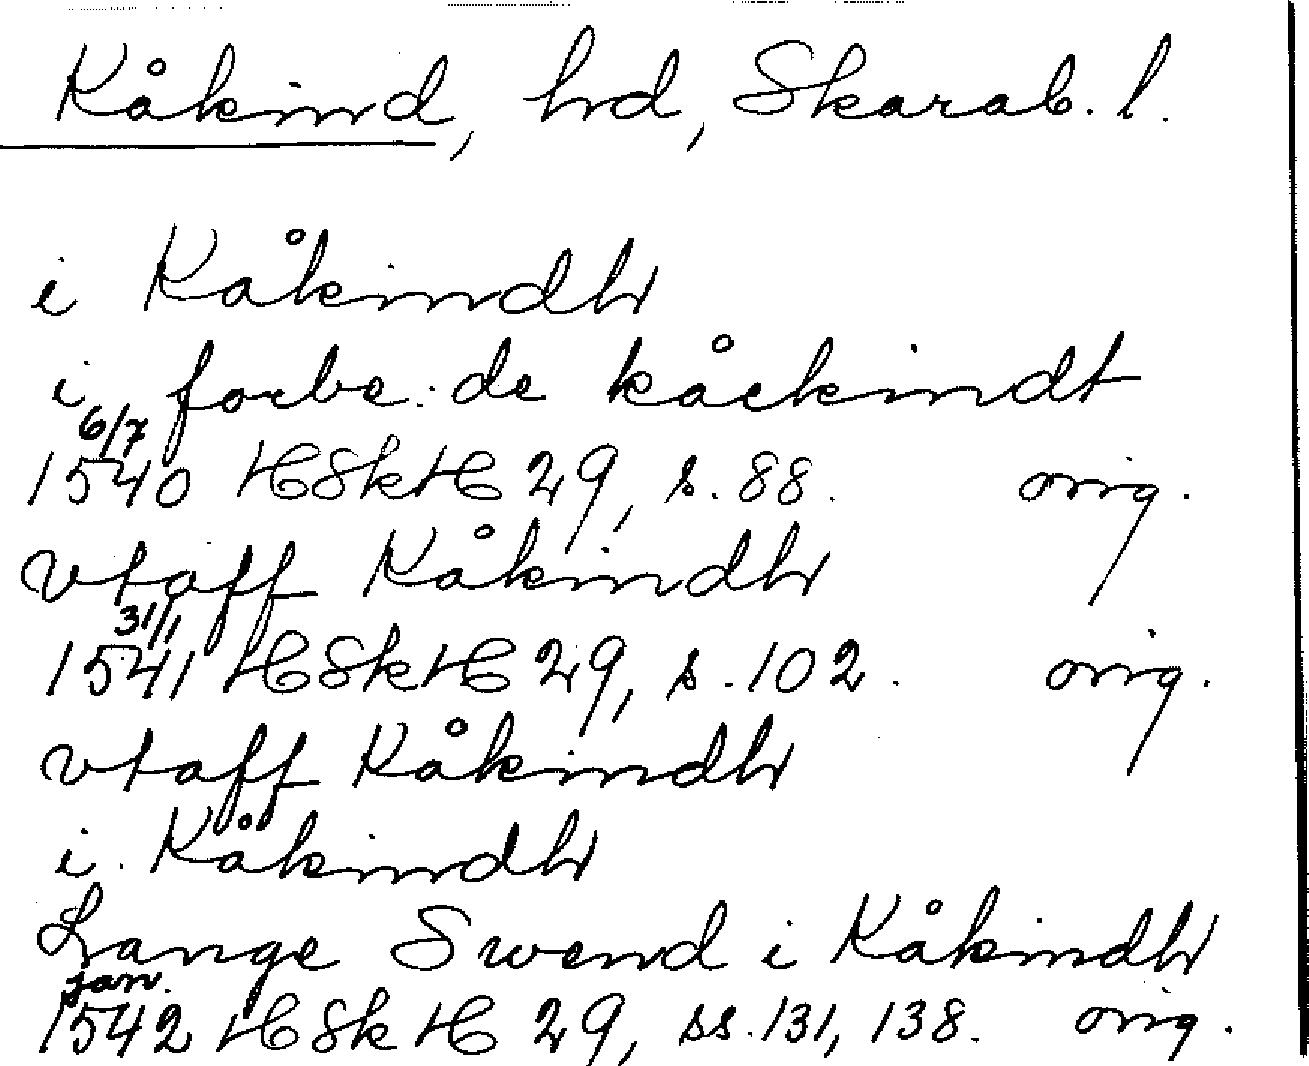 Kåkind, hd, Skarab. l.
i Kåkindh
i forbe: de kåckindt
6/7
1540 HSkH 29, s. 88. orig.
vtaff Kåkindh
31/1
1541 HSkH 29, s. 102. orig.
vtaff Kåkindh
i Kåkindh
Lange Swend i Kåkindh
jan.
1542 HSkH 29, ss. 131, 138. orig.